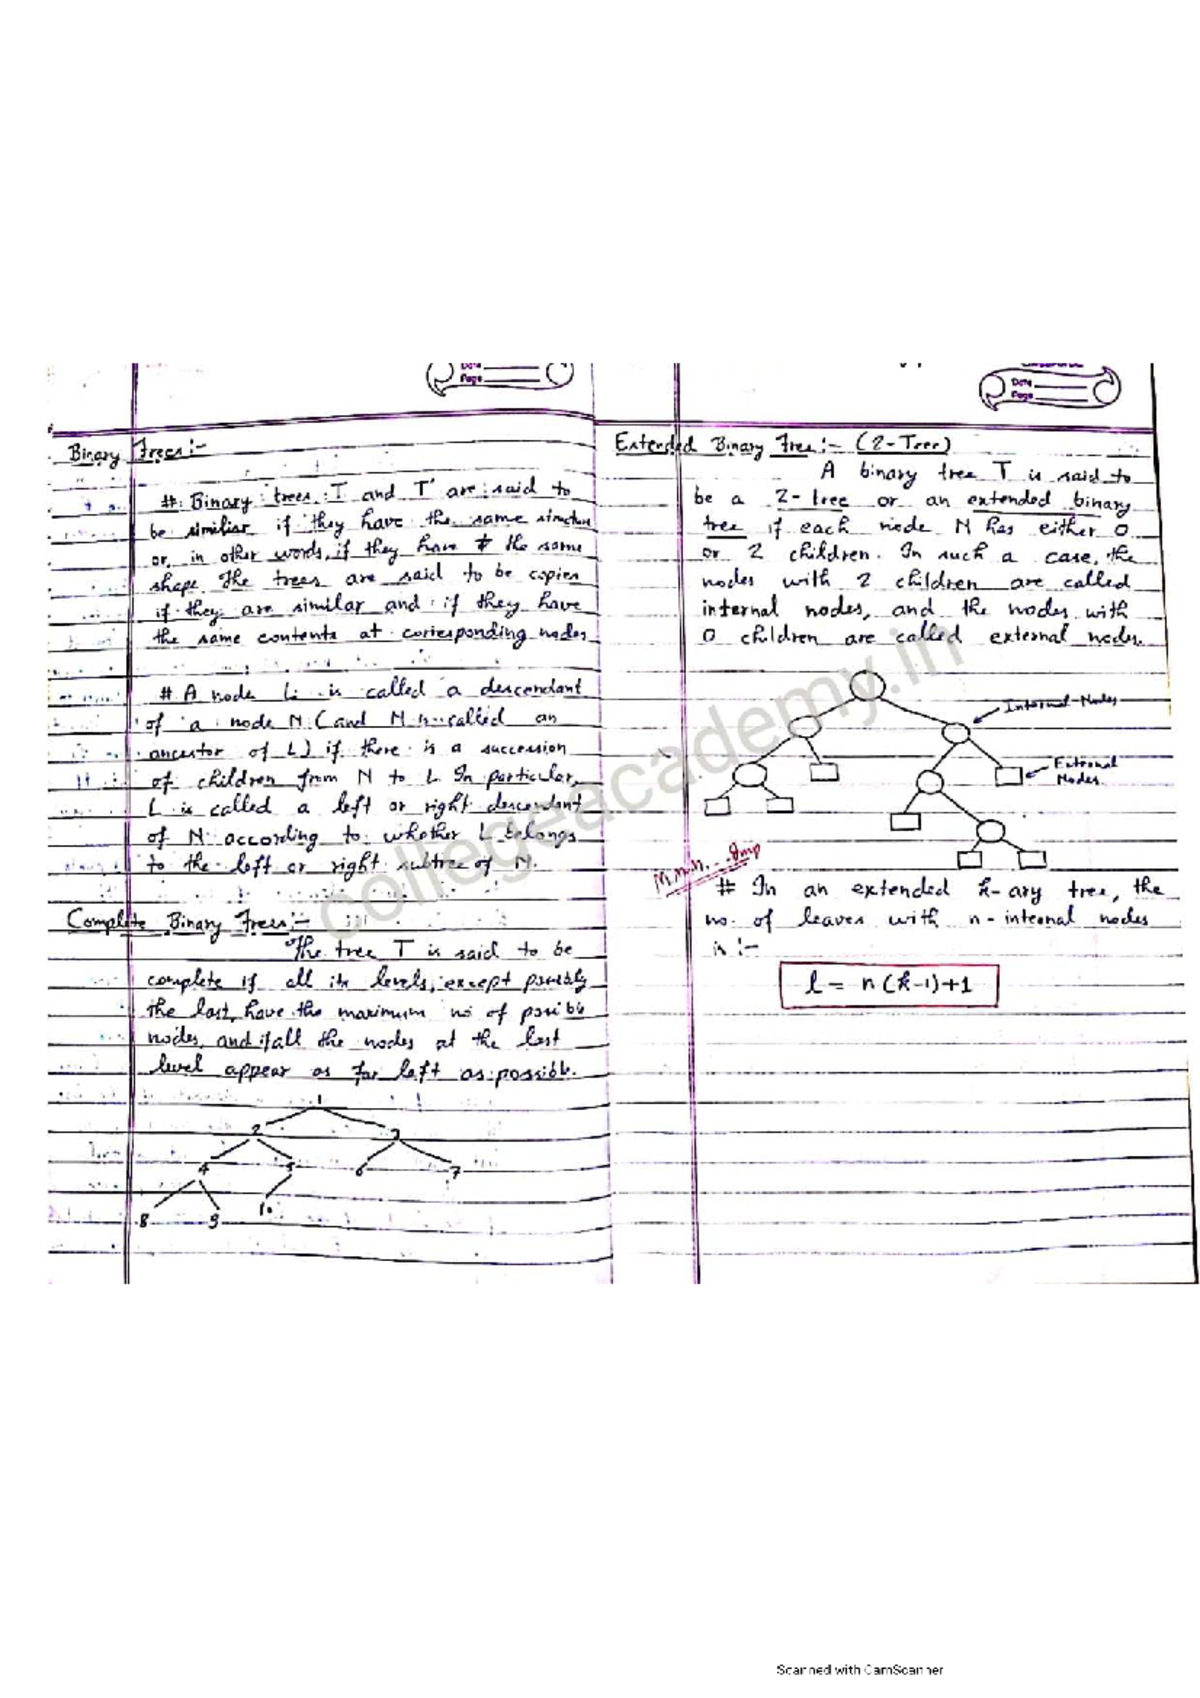 Date
Page
Binary Trees:-
# Binary trees T and T' are said to
be similiar if they have the same structure
or, in other words, if they have the same
shape. The trees are said to be copies
if they are similar and if they have
the same contents at corresponding nodes
# A node L is called a descendant
of a node N (and N is called an
ancestor of L) if there is a succession
of children from N to L. In particular,
L is called a left or right descendant
of N according to whether L belongs
to the left or right subtree of N.
Complete Binary Trees:-
The tree T is said to be
complete if all its levels, except possibly
the last, have the maximum no of possible
nodes, and if all the nodes at the last
level appear as far left as possible.
1
2 3
4 5 6 7
8 9 10
Date
Page
Extended Binary Tree:- (2-Tree)
A binary tree T is said to
be a 2-tree or an extended binary
tree if each node N has either 0
or 2 children. In such a case, the
nodes with 2 children are called
internal nodes, and the nodes with
0 children are called external nodes.
Internal Nodes
External
Nodes.
# In an extended k-ary tree, the
no. of leaves with n-internal nodes
is:-
l = n(k-1)+1
collegeacademy.in
Scanned with CamScanner